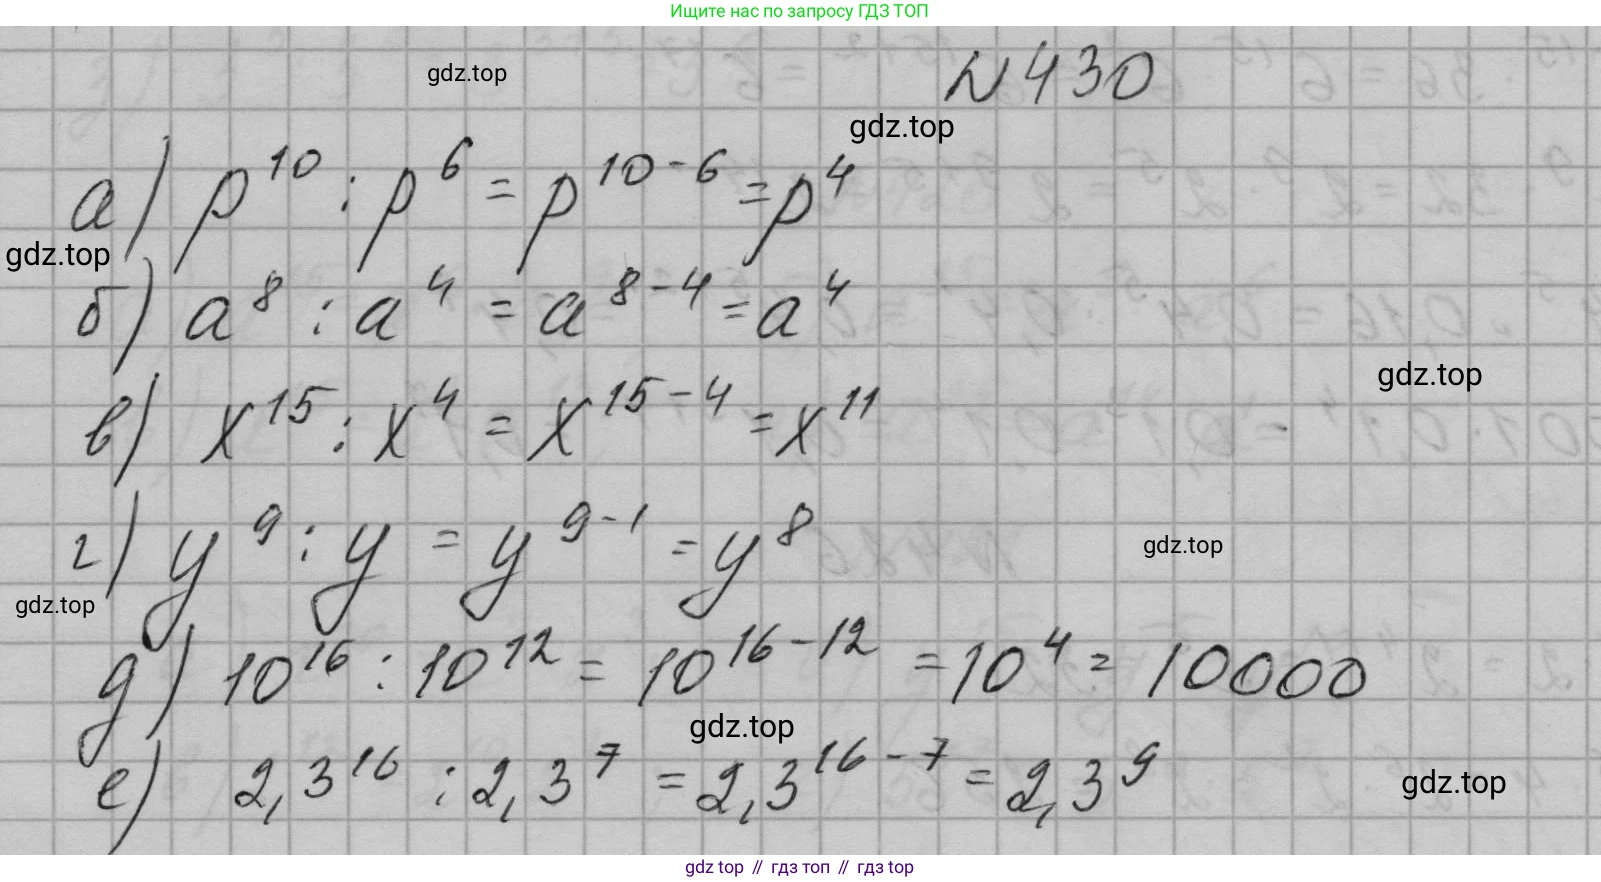 Ищите нас по запросу ГДЗ ТОП
gdz.top
№ 430
gdz.top
а) p^10 : p^6 = p^10-6 = p^4
gdz.top
б) a^8 : a^4 = a^8-4 = a^4
gdz.top
в) x^15 : x^4 = x^15-4 = x^11
г) y^9 : y = y^9-1 = y^8
gdz.top
gdz.top
д) 10^16 : 10^12 = 10^16-12 = 10^4 = 10000
gdz.top
е) 2,3^16 : 2,3^7 = 2,3^16-7 = 2,3^9
gdz.top
gdz top // гдз топ // гдз top